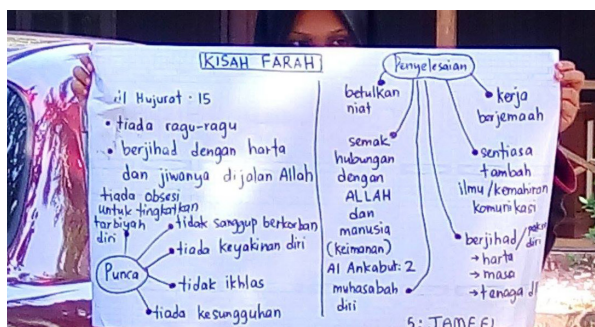 KISAH FARAH
il Hujurat · 15
• tiada ragu-ragu
• berjihad dengan harta
dan jiwanya di jalan Allah
tiada obsesi
untuk tingkatkan
tarbiyah
diri
Punca
• tidak sanggup berkorban
• tiada keyakinan diri
• tidak ikhlas
• tiada kesungguhan
Penyelesaian
betulkan
niat
semak
hubungan
dengan
ALLAH
dan
manusia
(keimanan)
Al Ankabut: 2
muhasabah
diri
• kerja
berjemaah
• sentiasa
tambah
ilmu/kemahiran
komunikasi
• berjihad/
diri
→ harta
→ masa
→ tenaga dll
5: